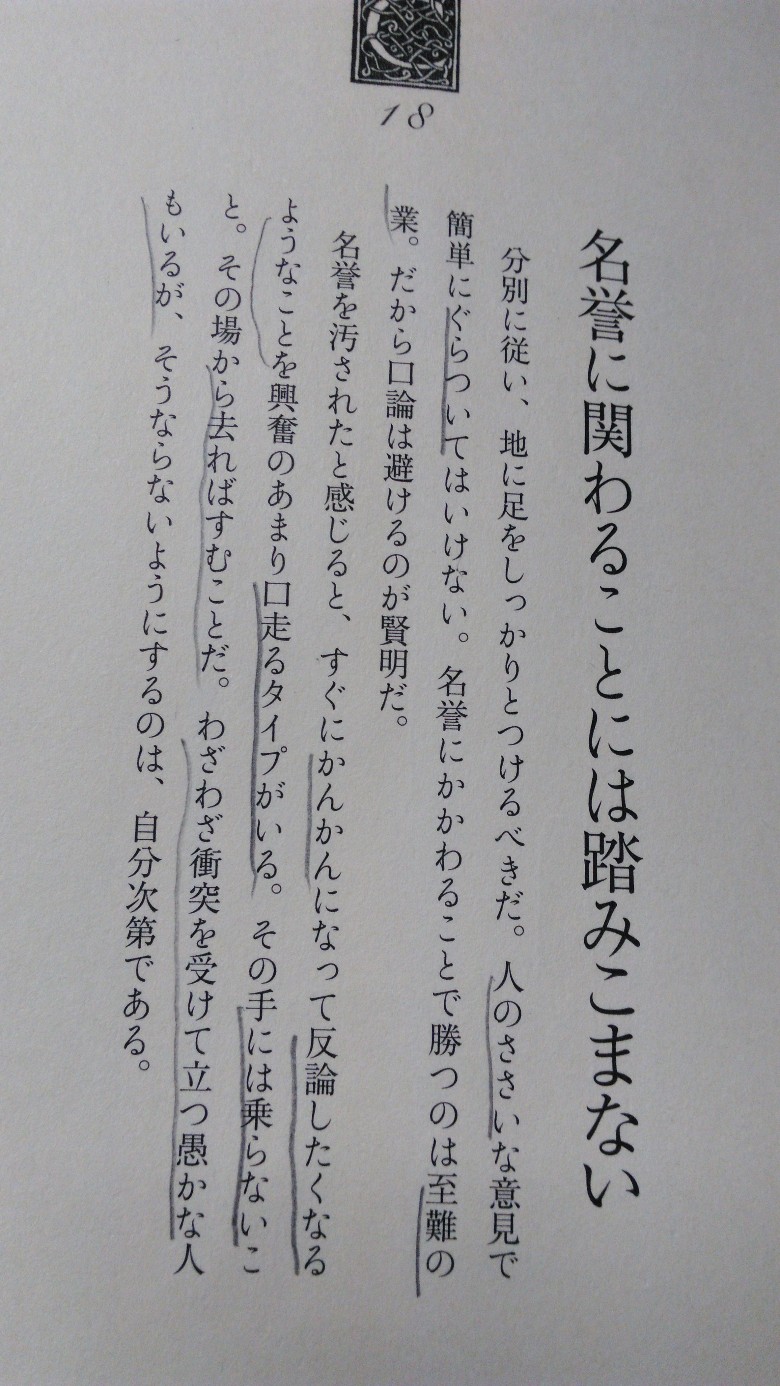 18
名誉に関わることには踏みこまない
分別に従い、地に足をしっかりとつけるべきだ。人のささいな意見で
簡単にぐらついてはいけない。名誉にかかわることで勝つのは至難の
業。だから口論は避けるのが賢明だ。
名誉を汚されたと感じると、すぐにかんかんになって反論したくなる
ようなことを興奮のあまり口走るタイプがいる。その手には乗らないこ
と。その場から去ればすむことだ。わざわざ衝突を受けて立つ愚かな人
もいるが、そうならないようにするのは、自分次第である。